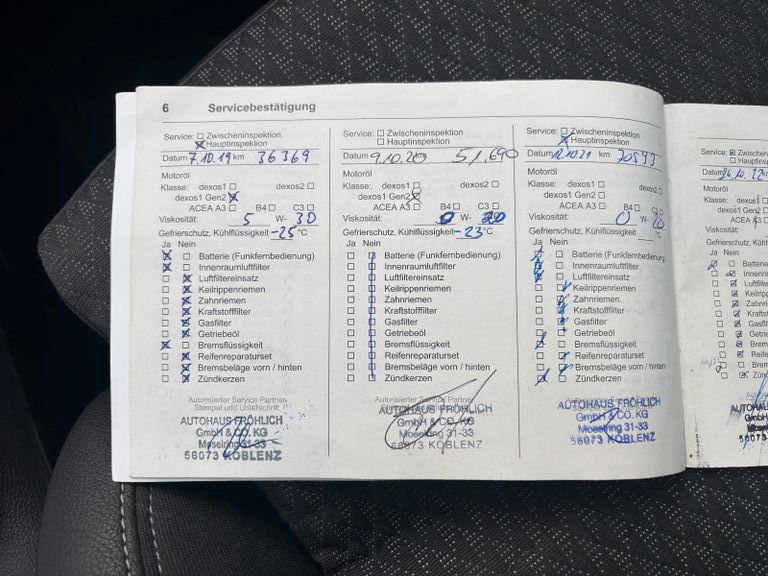 6 Servicebestätigung
Service: Zwischeninspektion
Hauptinspektion
Datum 7.10.19 km 36369
Motoröl
Klasse: dexos1 dexos2
dexos1 Gen2
ACEA A3 B4 C3
Viskosität: 5 W- 30
Gefrierschutz, Kühlflüssigkeit -25 °C
Ja Nein
Batterie (Funkfernbedienung)
Innenraumluftfilter
Luftfiltereinsatz
Keilrippenriemen
Zahnriemen
Kraftstofffilter
Gasfilter
Getriebeöl
Bremsflüssigkeit
Reifenreparaturset
Bremsbeläge vorn / hinten
Zündkerzen
Autorisierter Service Partner
Stempel und Unterschrift
AUTOHAUS FRÖHLICH
GmbH & CO. KG
Moselring 31-33
56073 KOBLENZ
Service: Zwischeninspektion
Hauptinspektion
Datum 9.10.20 km 51.690
Motoröl
Klasse: dexos1 dexos2
dexos1 Gen2
ACEA A3 B4 C3
Viskosität: 0 W- 20
Gefrierschutz, Kühlflüssigkeit -23 °C
Ja Nein
Batterie (Funkfernbedienung)
Innenraumluftfilter
Luftfiltereinsatz
Keilrippenriemen
Zahnriemen
Kraftstofffilter
Gasfilter
Getriebeöl
Bremsflüssigkeit
Reifenreparaturset
Bremsbeläge vorn / hinten
Zündkerzen
Autorisierter Service Partner
AUTOHAUS FRÖHLICH
GmbH & CO. KG
Moselring 31-33
56073 KOBLENZ
Service: Zwischeninspektion
Hauptinspektion
Datum 12.10.21 km 70593
Motoröl
Klasse: dexos1 dexos2
dexos1 Gen2
ACEA A3 B4 C3
Viskosität: 0 W- 20
Gefrierschutz, Kühlflüssigkeit °C
Ja Nein
Batterie (Funkfernbedienung)
Innenraumluftfilter
Luftfiltereinsatz
Keilrippenriemen
Zahnriemen
Kraftstofffilter
Gasfilter
Getriebeöl
Bremsflüssigkeit
Reifenreparaturset
Bremsbeläge vorn / hinten
Zündkerzen
Autorisierter Service Partner
AUTOHAUS FRÖHLICH
GmbH & CO. KG
Moselring 31-33
56073 KOBLENZ
Service: Zwischenin
Hauptinsp
Datum 24.10.22
Motoröl
Klasse: dexos1
dexos1 Gen2
ACEA A3
Viskosität:
Gefrierschutz, Kühlflüssigk
Ja Nein
Batterie
Innenra
Luftfilte
Keilripp
Zahnrie
Kraftsto
Gasfilte
Getrieb
Bremsf
Reifenr
Bremsb
Zünd
AUTOHA
GmbH
Mosel
56073